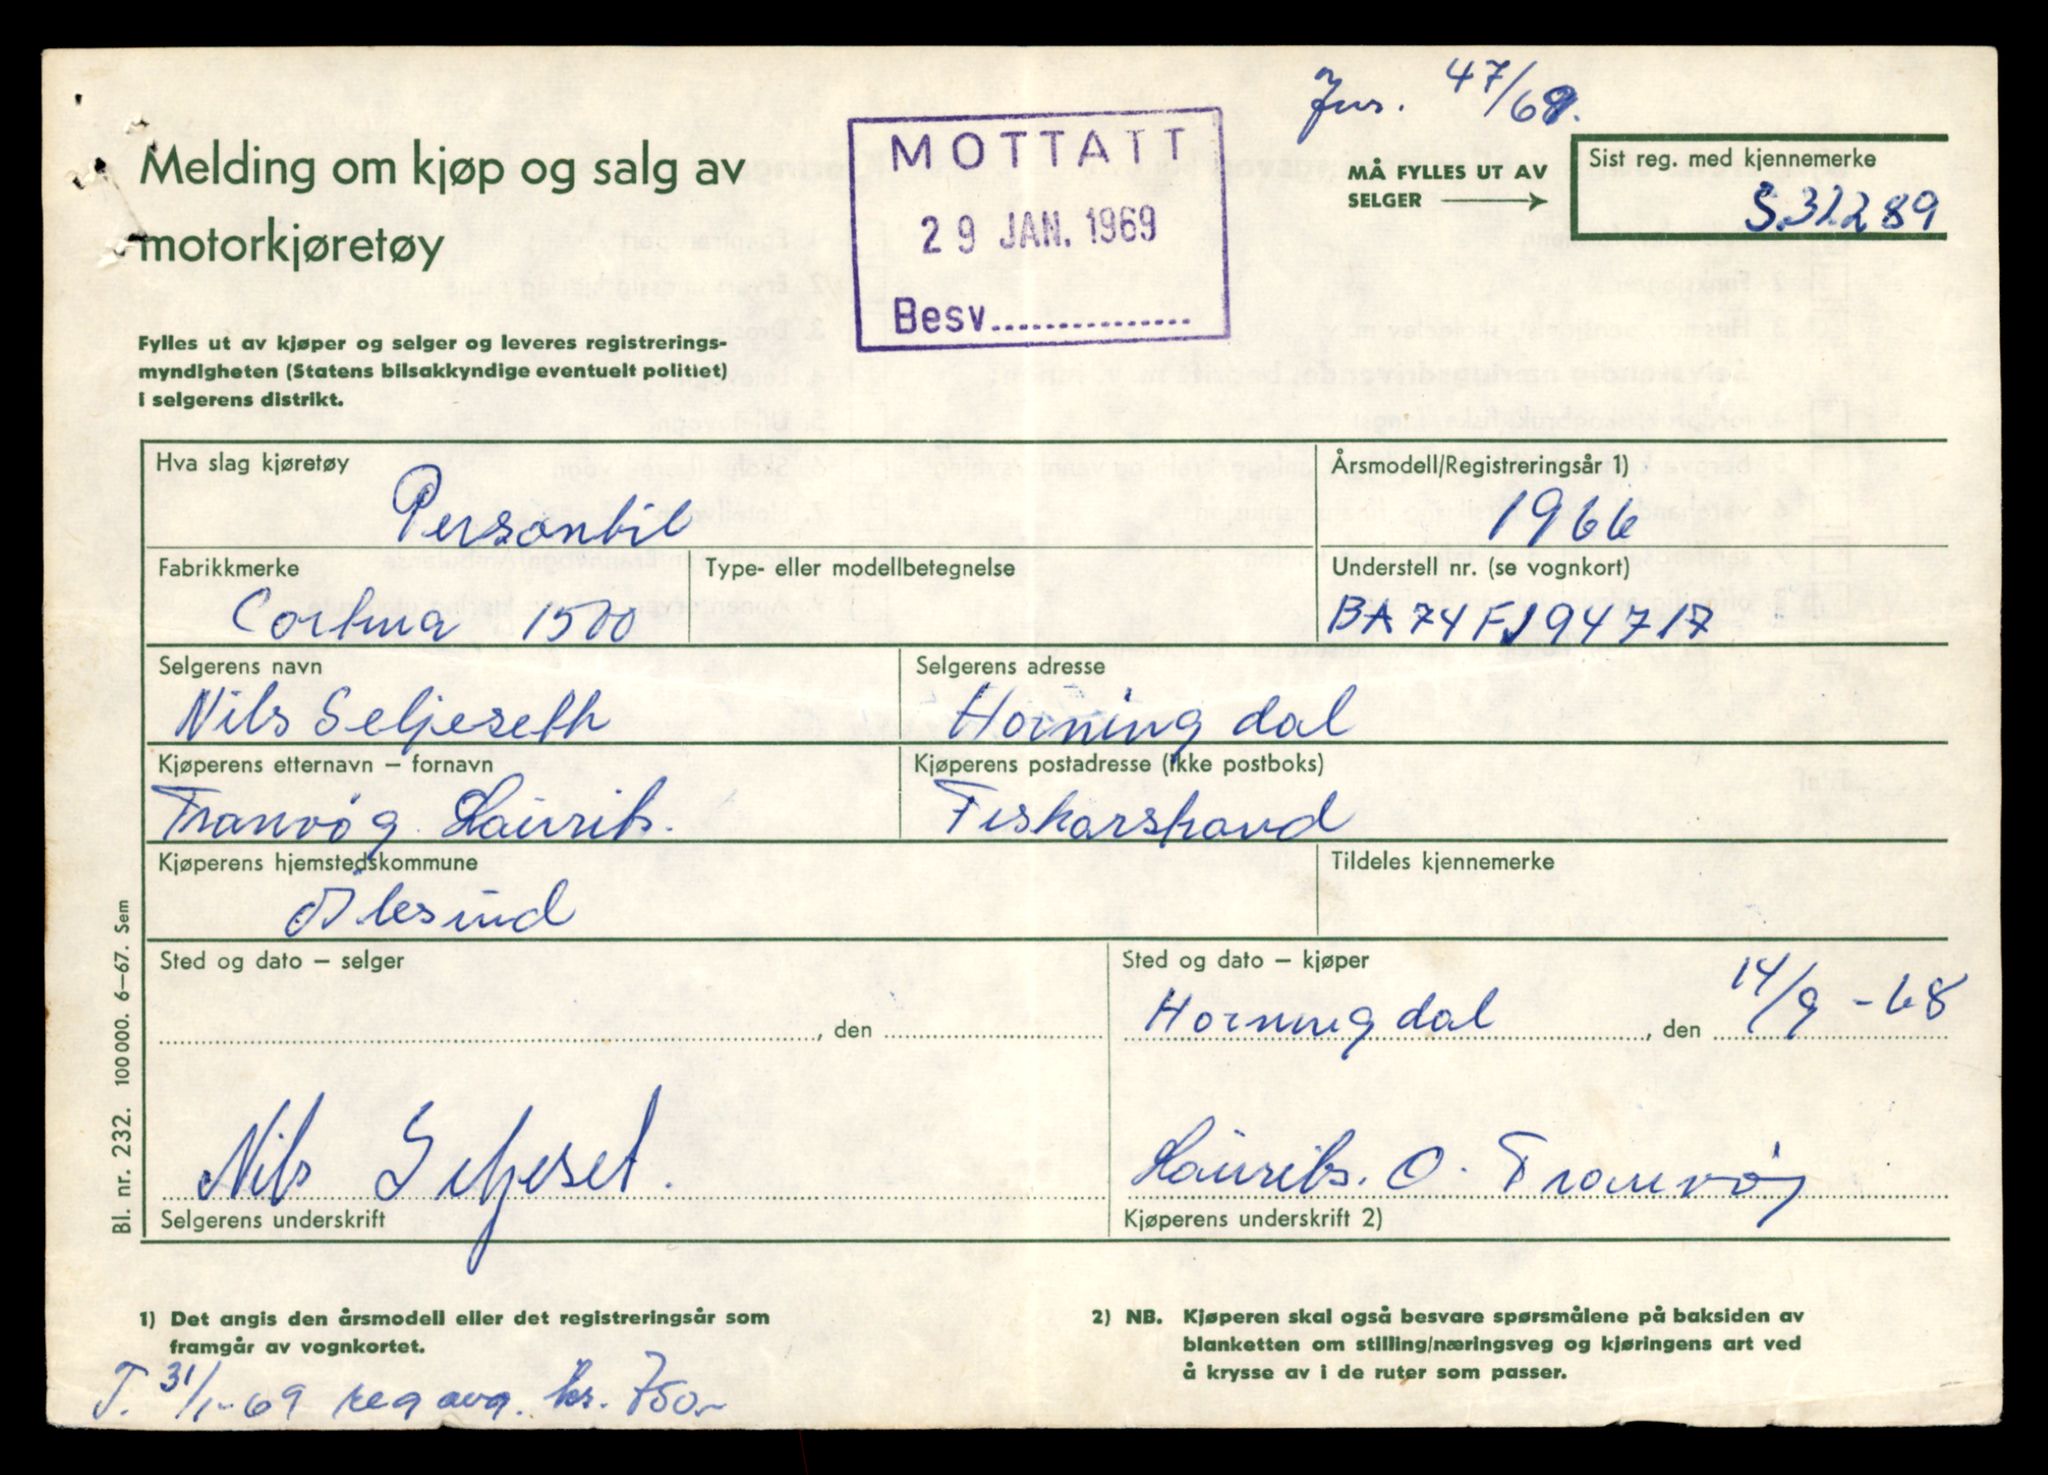 Jnr. 47/69.
Melding om kjøp og salg av
motorkjøretøy
MOTTATT
29 JAN. 1969
Besv................
MÅ FYLLES UT AV
SELGER
Sist reg. med kjennemerke
S.31289
Fylles ut av kjøper og selger og leveres registrerings-
myndigheten (Statens bilsakkyndige eventuelt politiet)
i selgerens distrikt.
Hva slag kjøretøy
Personbil
Årsmodell/Registreringsår 1)
1966
Fabrikkmerke
Cortina 1500
Type- eller modellbetegnelse
Understell nr. (se vognkort)
BA74FJ94717
Selgerens navn
Nils Seljeseth
Selgerens adresse
Horningdal
Kjøperens etternavn – fornavn
Tranvåg Laurits.
Kjøperens postadresse (ikke postboks)
Fiskarstrand
Kjøperens hjemstedskommune
Ålesund
Tildeles kjennemerke
Sted og dato – selger
, den
Sted og dato – kjøper
Horningdal, den 14/9 - 68
Nils Seljeset.
Selgerens underskrift
Laurits. O. Tranvåg
Kjøperens underskrift 2)
Bl. nr. 232. 100 000. 6–67. Sem
1) Det angis den årsmodell eller det registreringsår som
framgår av vognkortet.
2) NB. Kjøperen skal også besvare spørsmålene på baksiden av
blanketten om stilling/næringsveg og kjøringens art ved
å krysse av i de ruter som passer.
T. 31/1-69 reg avg. kr. 750,-